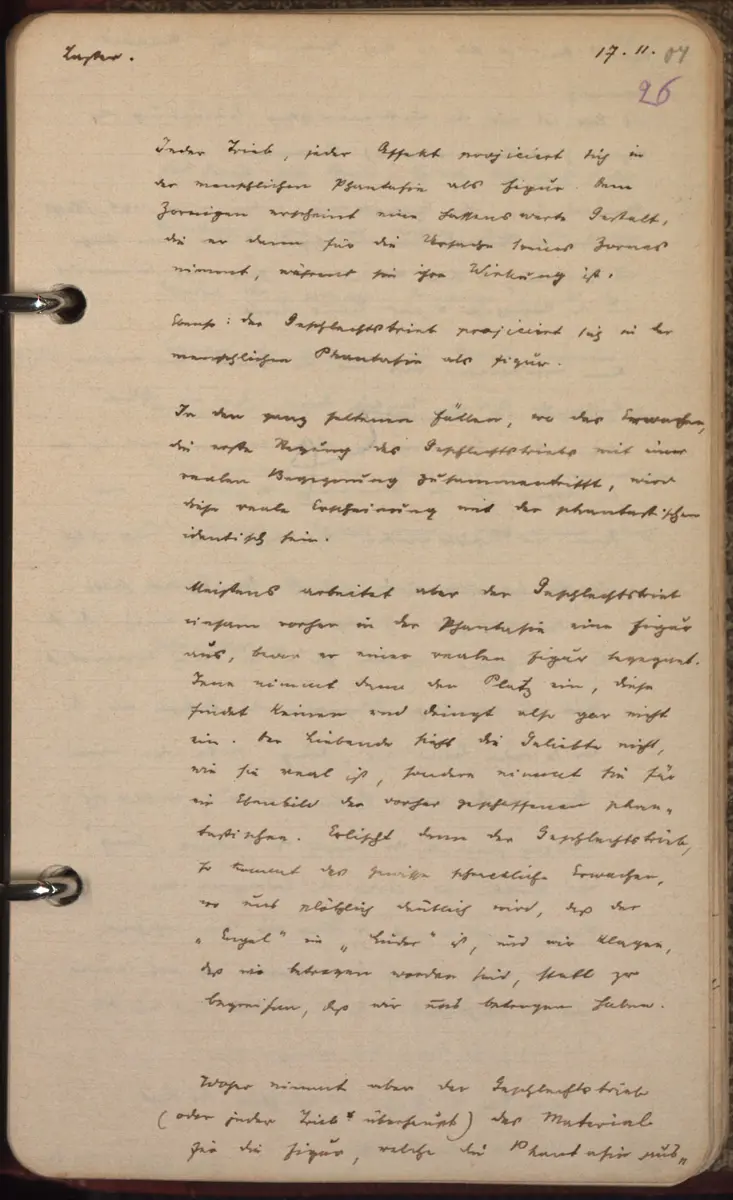 Laster.
17. 11. 07
26
Jeder Trieb, jeder Affekt projiciert sich in
der menschlichen Phantasie als Figur. Dem
Zornigen erscheint eine hassenswerte Gestalt,
die er dann für die Ursache seines Zornes
nimmt, während sie ihre Wirkung ist.
Ebenso: der Geschlechtstrieb projiciert sich in der
menschlichen Phantasie als Figur.
In den ganz seltenen Fällen, wo das Erwachen,
die erste Regung des Geschlechtstriebs mit einer
realen Begegnung zusammentrifft, wird
diese reale Erscheinung mit der phantastischen
identisch sein.
Meistens arbeitet aber der Geschlechtstrieb
einsam vorher in der Phantasie eine Figur
aus, bevor er einer realen Figur begegnet.
Jene nimmt dann den Platz ein, diese
findet keinen und dringt also gar nicht
ein. Der Liebende sieht die Geliebte nicht,
wie sie real ist, sondern nimmt sie für
ein Ebenbild der vorher geschaffenen phan-
tastischen. Erlischt dann der Geschlechtstrieb,
so kommt das gewisse schreckliche Erwachen,
wo uns plötzlich deutlich wird, daß der
„Engel" ein „Luder" ist, und wir klagen,
daß wir betrogen worden sind, statt zu
begreifen, daß wir uns betrogen haben.
Woher nimmt aber der Geschlechtstrieb
(oder jeder Trieb überhaupt) das Material
für die Figur, welche die Phantasie aus-